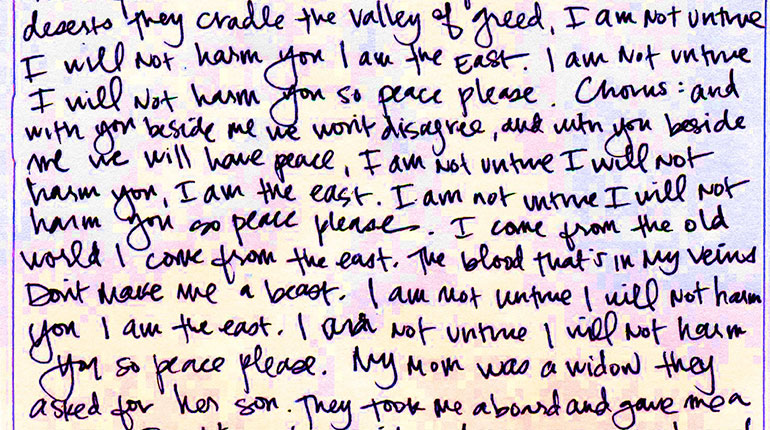 deserts they cradle the valley of greed, I am not untrue
I will not harm you I am the East. I am not untrue
I will not harm you so peace please. Chorus: and
with you beside me we wont disagree, and with you beside
me we will have peace, I am not untrue I will not
harm you, I am the east. I am not untrue I will not
harm you so peace please. I come from the old
world I come from the east. The blood that's in my veins
Dont make me a beast. I am not untrue I will not harm
you I am the east. I am not untrue I will not harm
you so peace please. My Mom was a widow they
asked for her son. They took me aboard and gave me a